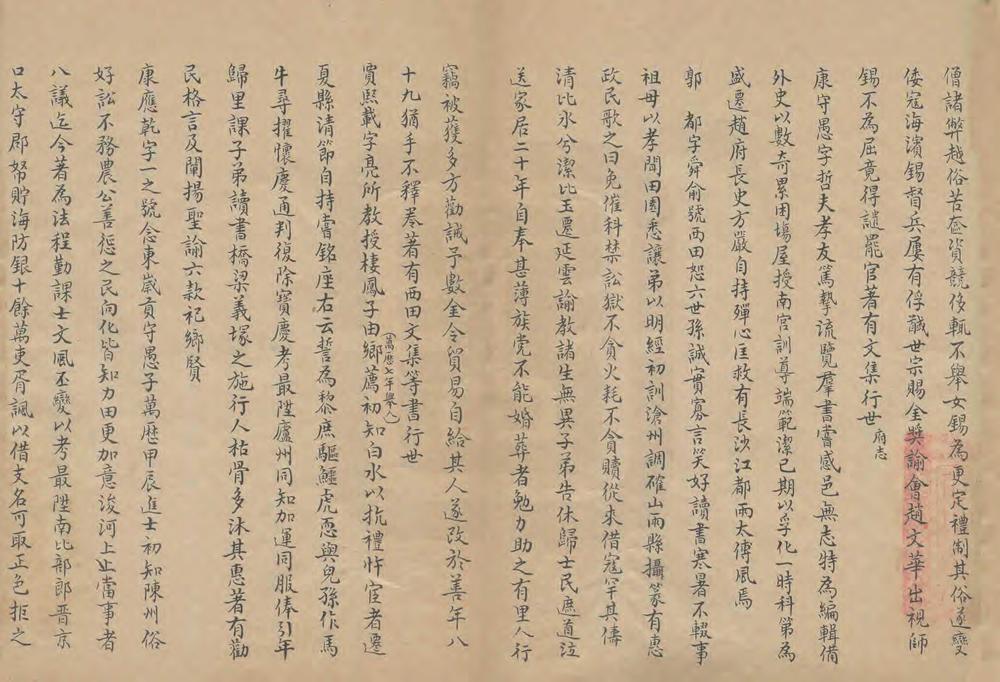 僧諸弊越俗苦奩資競侈輒不舉女錫為更定禮制其俗遂變
倭寇海濱錫督兵屢有俘馘世宗賜金獎諭會趙文華出視師
錫不為屈竟得譴罷官著有文集行世府志
康守愚字哲夫孝友篤摯流覽羣書嘗感邑無志特為編輯備
外史以數奇累困場屋授南宮訓導端範潔己期以孚化一時科第為
盛遷趙府長史方嚴自持殫心匡救有長沙江都兩太傅風焉
郭 都字舜俞號西田恕六世孫誠實寡言笑好讀書寒暑不輟事
祖母以孝聞田園悉讓弟以明經初訓滄州調確山兩縣攝篆有惠
政民歌之曰免催科禁訟獄不貪火耗不貪贖從來借寇罕其儔
清比水兮潔比玉遷延雲諭教諸生無異子弟告休歸士民庶道泣
送家居二十年自奉甚薄族党不能婚葬者勉力助之有里人行
竊被獲多方勸誡予數金令貿易自給其人遂改於善年八
十九猶手不釋卷著有西田文集等書行世
賈熙載字亮所教授棲鳳子由鄉薦(萬歷七年舉人)初知白水以抗禮忤宦者遷
夏縣清節自持嘗銘座右云誓為黎庶驅鱷虎恧與兒孫作馬
牛尋擢懷慶通判復除寶慶考最陞廬州同知加運同服俸引年
歸里課子弟讀書橋梁義塚之施行人枯骨多沐其惠著有勸
民格言及闡揚聖諭六款祀鄉賢
康應乾字一之號念東歲貢守愚子萬歷甲辰進士初知陳州俗
好訟不務農公善懲之民向化皆知力田更加意浚河上㞢當事者
八議迄今著為法程勤課士文風丕變以考最陞南比部郎晉京
口太守郡帑貯海防銀十餘萬吏胥諷以借支名可取正色拒之